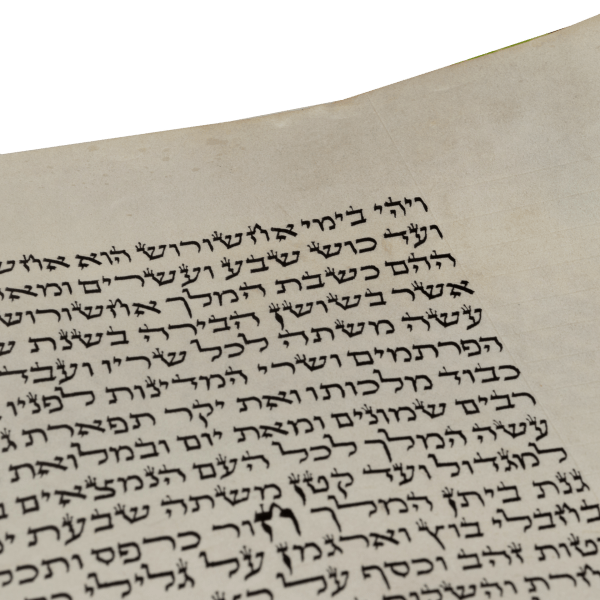 ויהי בימי אחשורוש הוא אחש
ועד כוש שבע ועשרים ומאה
ההם כשבת המלך אחשורוש
אשר בשושן הבירה בשנת ש
עשה משתה לכל שריו ועבדי
הפרתמים ושרי המדינות לפניו
כבוד מלכותו ואת יקר תפארת ג
רבים שמונים ומאת יום ובמלואת
עשה המלך לכל העם הנמצאים ב
למגדול ועד קטן משתה שבעת ימ
גנת ביתן המלך חור כרפס ותכל
בחבלי בוץ וארגמן על גלילי כ
מטות זהב וכסף על